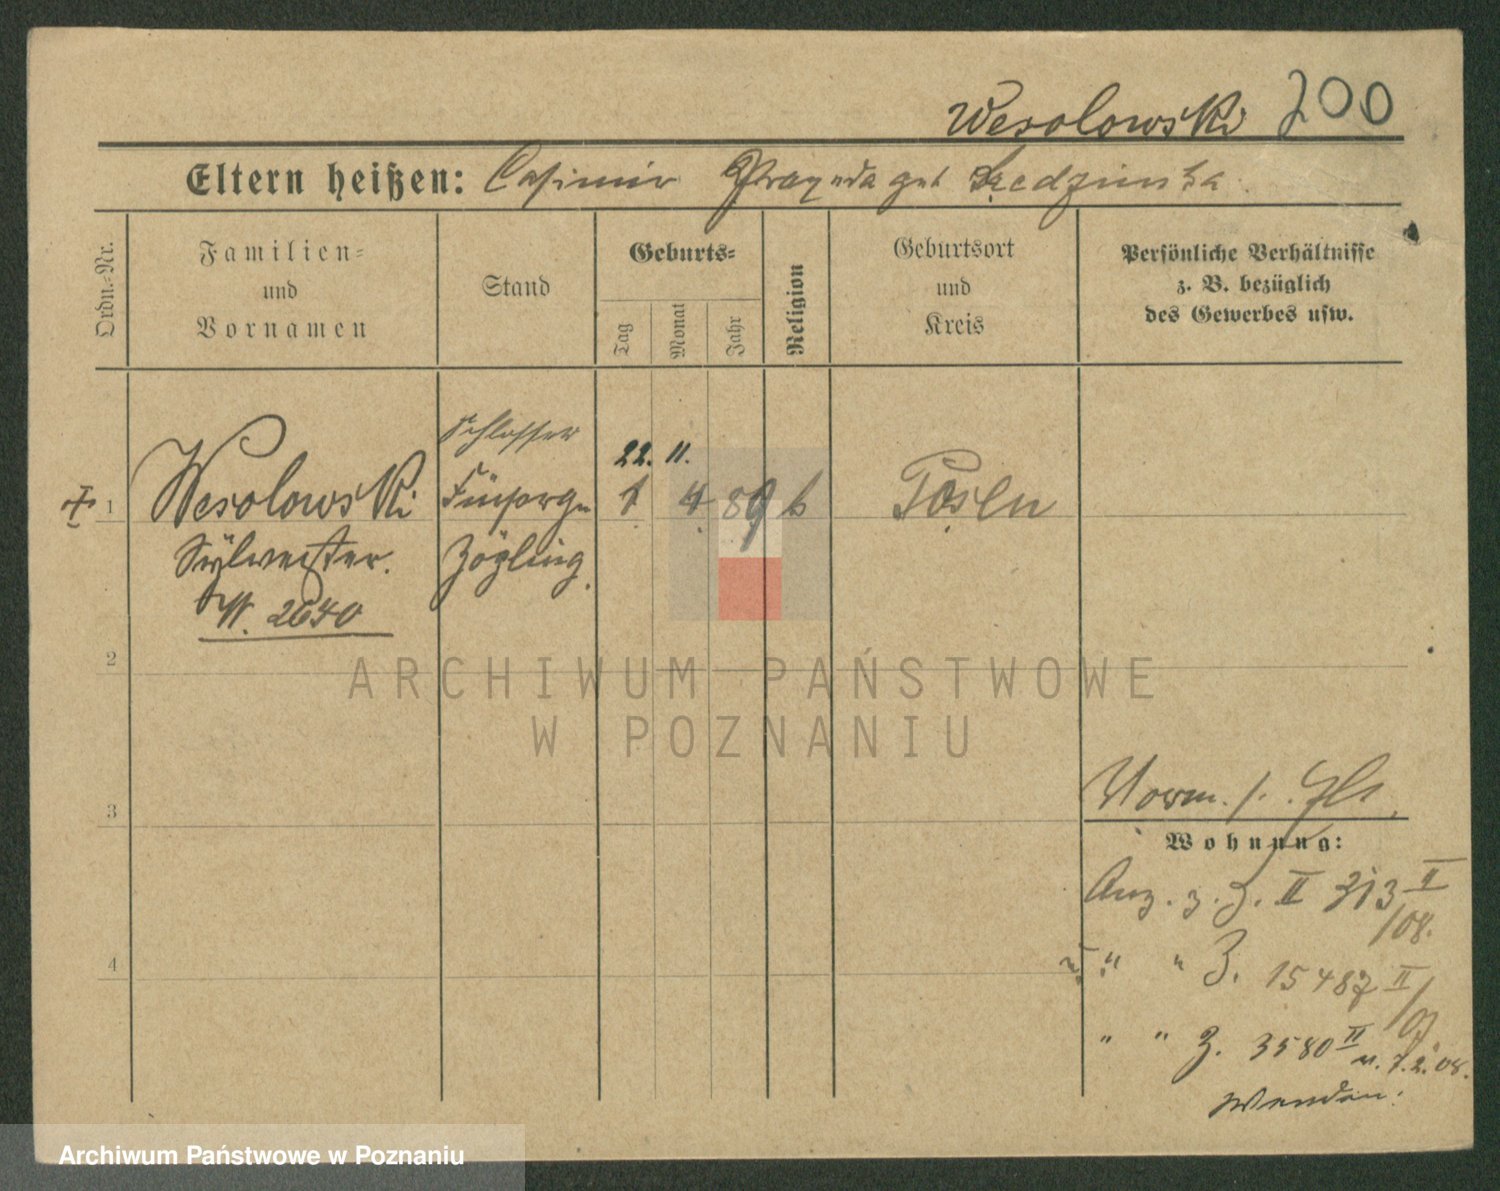 Wesolowski 200
Eltern heißen: Casimir Praxeda geb
Ordn.-Nr.
Familien-
und
Vornamen
Stand
Geburts-
Tag
Monat
Jahr
Religion
Geburtsort
und
Kreis
Persönliche Verhältnisse
z. B. bezüglich
des Gewerbes usw.
Schlosser
22. 11.
1 Wesolowski Fürsorge 1 4 89 k Posen
Sylvester. Zögling.
W. 2640
2
ARCHIWUM PAŃSTWOWE
W POZNANIU
3
Wohnung:
Anz. z. Z. II 313 II
/08.
4
" " Z. 15487 II/
07
" " Z. 3580 II u. 7.2.08.
Wenden.
Archiwum Państwowe w Poznaniu